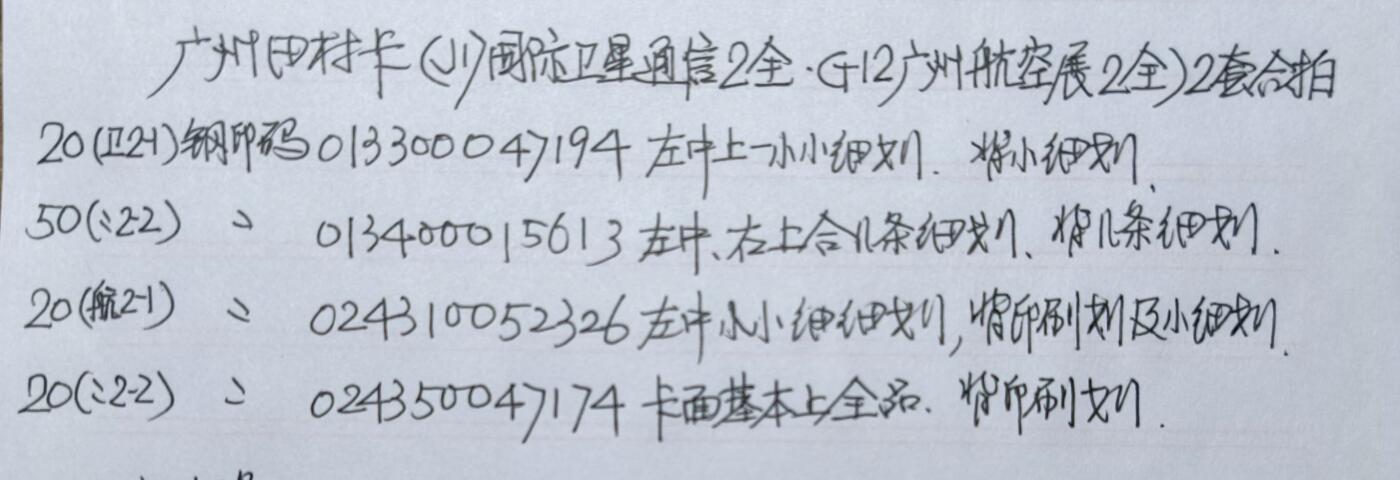 广州田村卡(J1)国际卫星通信2全·G12广州航空展2全)2套合拍
20(卫2-1)钢印码013300047194左中上一小小细划.背小细划.
50(〻2-2) 〻 013400015613左中、右上合几条细划、背几条细划.
20(航2-1) 〻 024310052326左中小小细细划,背印刷划及小细划.
20(〻2-2) 〻 024350047174卡面基本上全品.背印刷划.